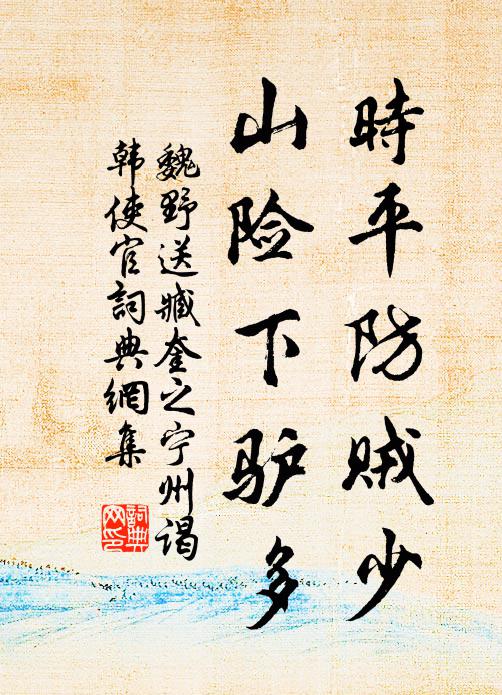 時平防贼少
山险下驴多
魏野送臧奎之宁州谒
韩使官詞典網集
詞典
网印